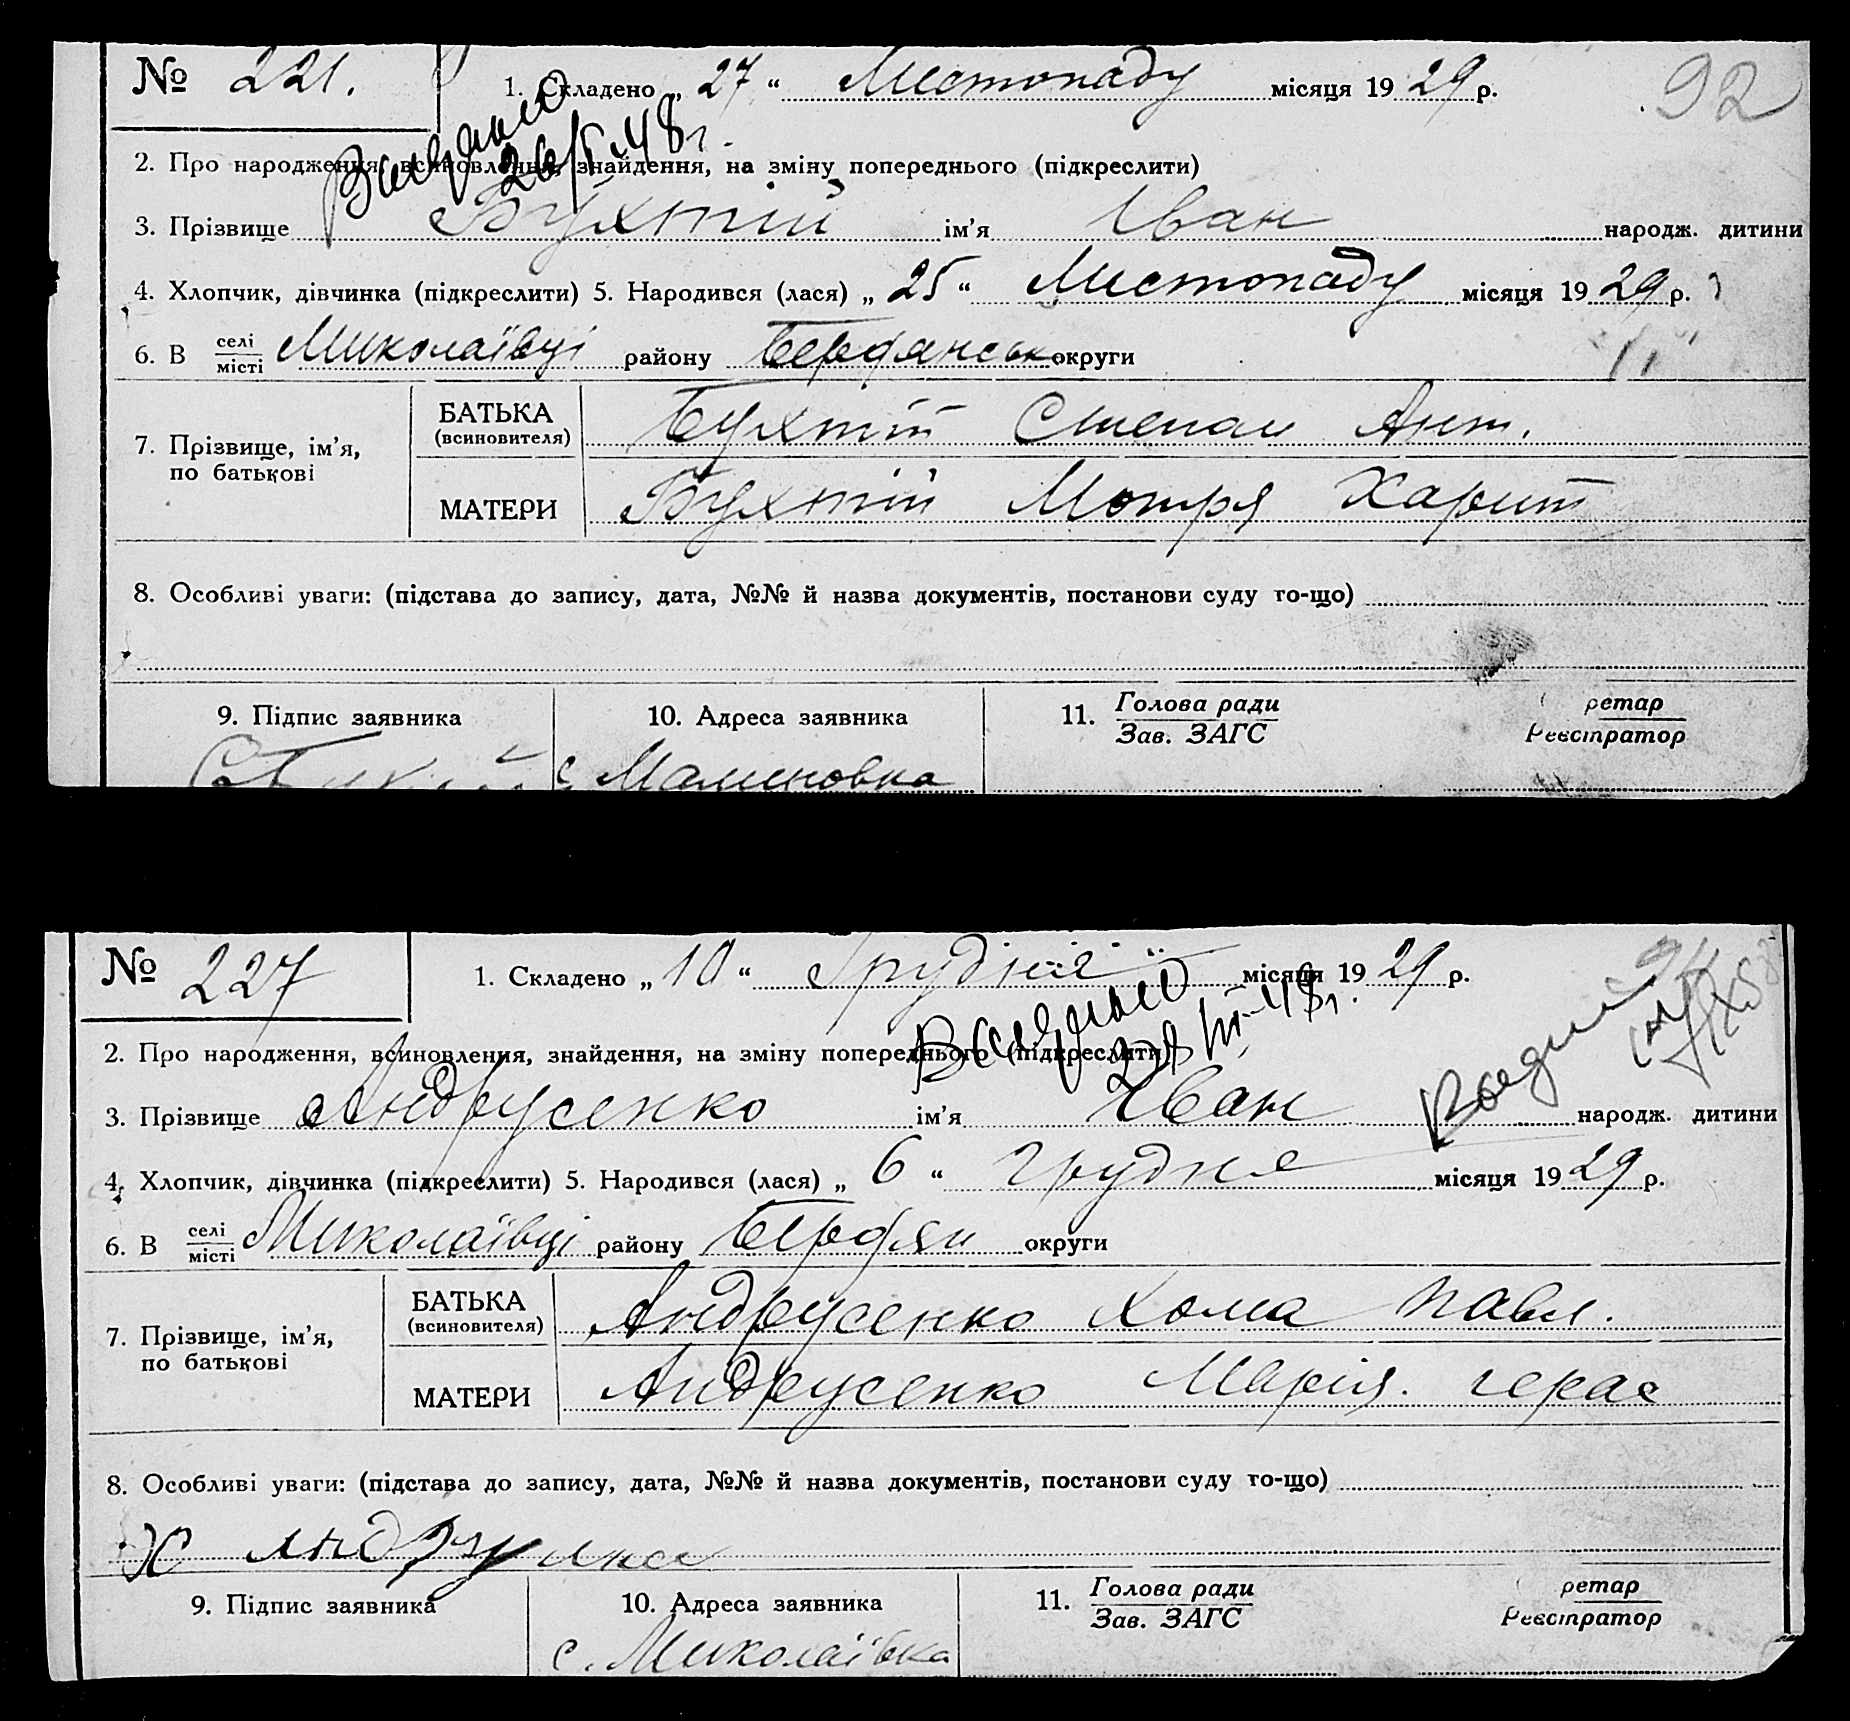 № 221.
1. Складено „ 27 “ Листопаду місяця 19 29 р.
92
2. Про народження, всиновлення, знайдення, на зміну попереднього (підкреслити)
3. Прізвище Бухтій ім’я Іван народж. дитини
4. Хлопчик, дівчинка (підкреслити) 5. Народився (лася) „ 25 “ Листопаду місяця 19 29 р.
6. В селі Миколаївці району Бердянськ округи
місті
БАТЬКА Бухтій Степан Ант.
(всиновителя)
7. Прізвище, ім’я,
по батькові
МАТЕРИ Бухтій Мотря Харит
8. Особливі уваги: (підстава до запису, дата, №№ й назва документів, постанови суду то-що)
9. Підпис заявника 10. Адреса заявника 11. Голова ради ретар
Зав. ЗАГС Реєстратор
с Малиновка
№ 227
1. Складено „ 10 “ Грудня місяця 19 29 р.
2. Про народження, всиновлення, знайдення, на зміну попереднього (підкреслити)
3. Прізвище Андрусенко ім’я Іван народж. дитини
4. Хлопчик, дівчинка (підкреслити) 5. Народився (лася) „ 6 “ Грудня місяця 19 29 р.
6. В селі Миколаївці району Бердян округи
місті
БАТЬКА Андрусенко Хома Павл.
(всиновителя)
7. Прізвище, ім’я,
по батькові
МАТЕРИ Андрусенко Марія. герас
8. Особливі уваги: (підстава до запису, дата, №№ й назва документів, постанови суду то-що)
9. Підпис заявника 10. Адреса заявника 11. Голова ради ретар
Зав. ЗАГС Реєстратор
с. Миколаївка